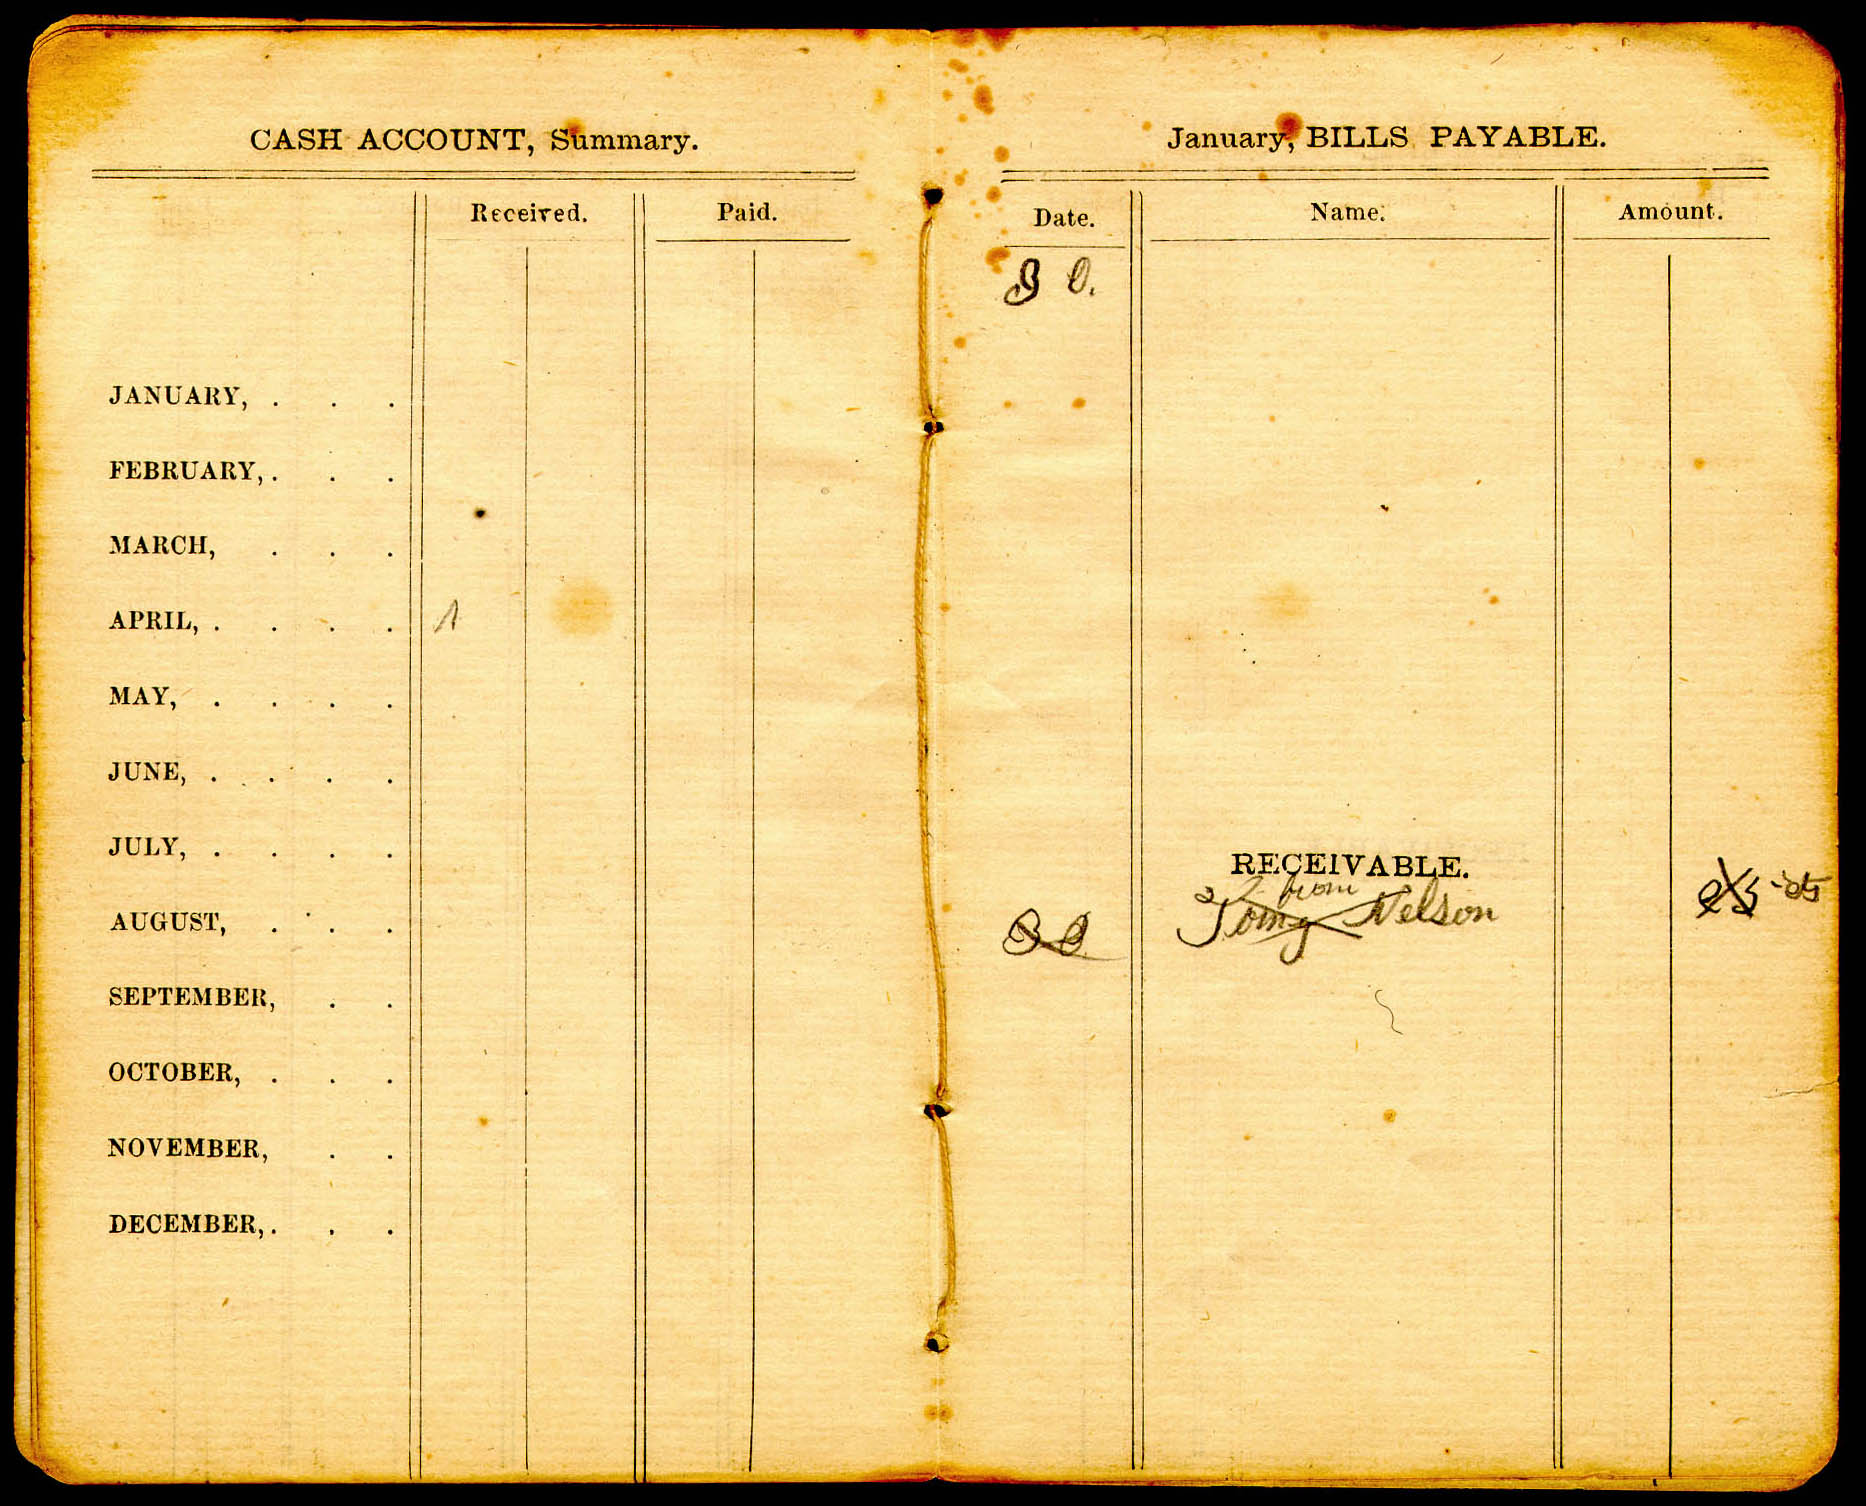 CASH ACCOUNT, Summary.
Received. Paid.
JANUARY, . . .
FEBRUARY, . . .
MARCH, . . .
APRIL, . . . .
MAY, . . . .
JUNE, . . . .
JULY, . . . .
AUGUST, . . .
SEPTEMBER, . .
OCTOBER, . . .
NOVEMBER, . .
DECEMBER, . . .
January, BILLS PAYABLE.
Date. Name. Amount.
RECEIVABLE.
from
Nelson